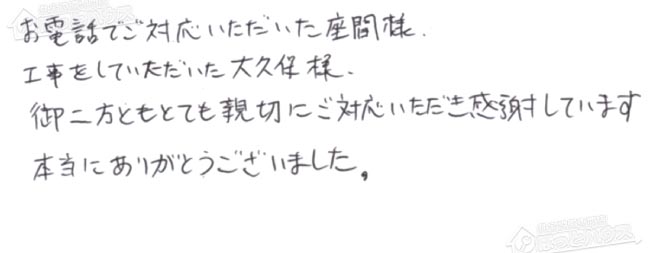 お電話でご対応いただいた座間様.
工事をしていただいた大久保様.
御二方ともとても親切にご対応いただき感謝しています
本当にありがとうございました。